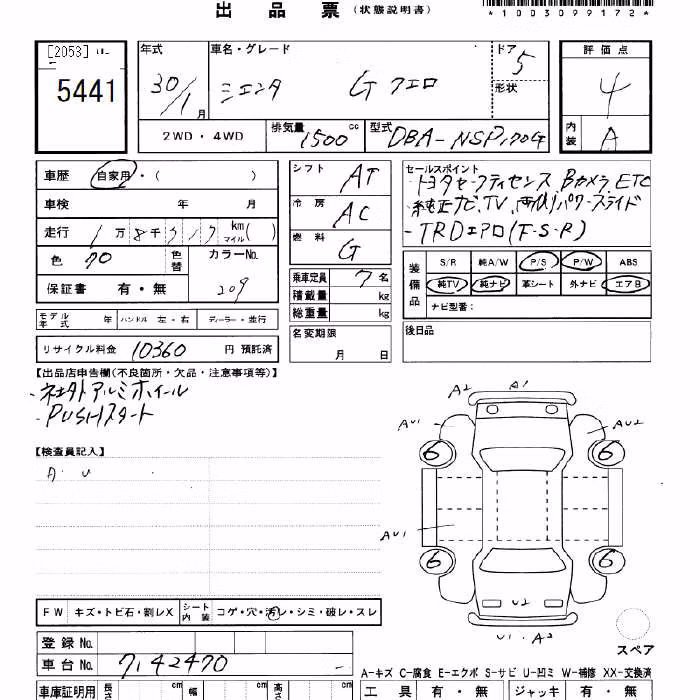 出品票 (状態説明書)
*1003099172*
[2053]
5441
年式
30/1月
車名・グレード
シエンタ G クエロ
ドア 5
形状
評価点
4
内装 A
2WD・4WD
排気量 1500 cc
型式 DBA-NSP170G
車歴 自家用・( )
車検 年 月
走行 1万8千 km マイル( )
色 クロ 色替
カラーNo. 209
保証書 有・無
シフト AT
冷房 AC
燃料 G
乗車定員 7名
積載量 kg
総重量 kg
名変期限 月 日
セールスポイント
・トヨタセーフティセンス、Bカメラ、ETC
・純正ナビ、TV、両側パワースライド
・TRDエアロ(F-S-R)
装備品
S/R 純A/W P/S P/W ABS
純TV 純ナビ 革シート 外ナビ エアB
ナビ型番:
後日品
モデル年式 年 ハンドル 左・右 ディーラー・並行
リサイクル料金 10360 円 預託済
【出品店申告欄(不良箇所・欠品・注意事項等)】
・社外アルミホイール
・PUSHスタート
【検査員記入】
A・U
A2 A1
AU1 AU2
6 6
AU1
6 6
U2
U1・A2
スペア
FW キズ・トビ石・割レX シート内装 コゲ・穴・汚レ・シミ・破レ・スレ
登録No.
車台No. 7142470
A-キズ C-腐食 E-エクボ S-サビ U-凹ミ W-補修 XX-交換済
車庫証明用 長さ cm 幅 cm 高さ cm
工具 有・無 ジャッキ 有・無